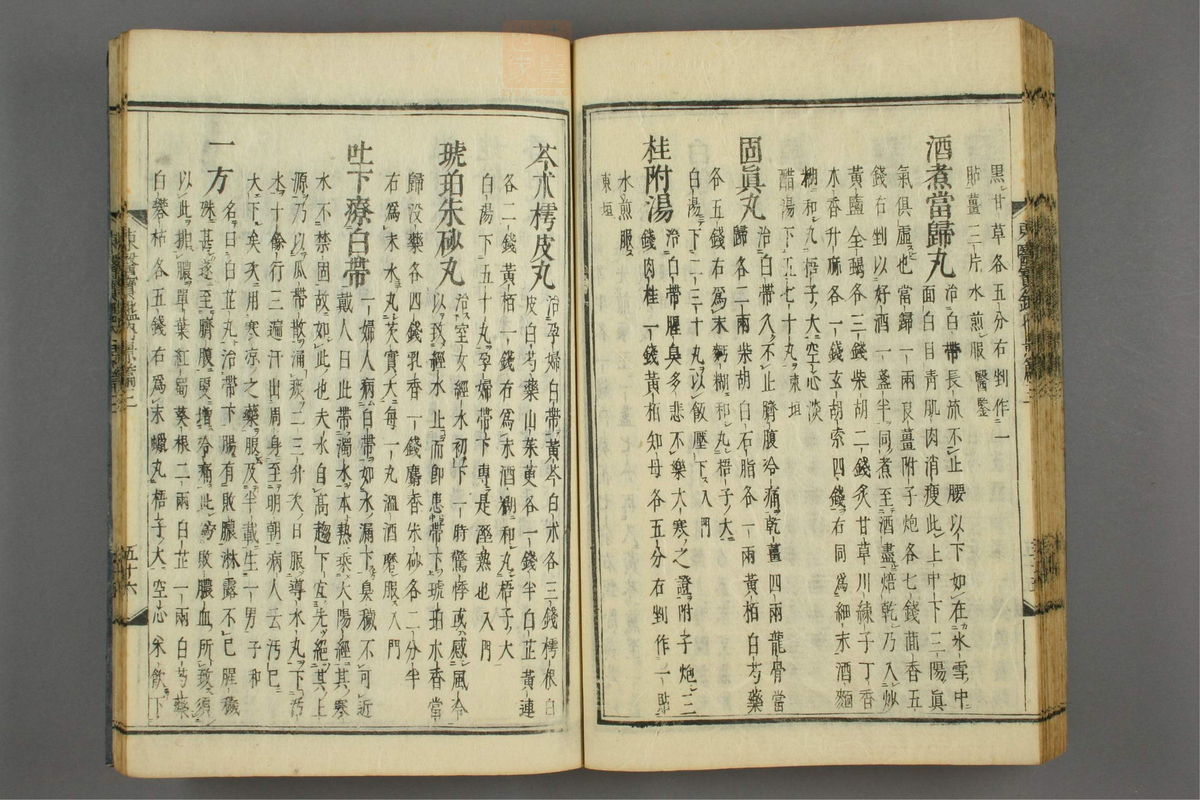 黑甘草各五分右剉作一
貼薑三片水煎服醫鑒
酒煮當歸丸治白帶長流不止腰以下如在氷雪中
面白目青肌肉消瘦此上中下三陽眞
氣俱虛也當歸一兩良薑附子炮各七錢茴香五
錢右剉以好酒一盞半同煮至酒盡焙乾乃入炒
黃鹽全蝎各三錢柴胡二錢炙甘草川練子丁香
木香升麻各一錢玄胡索四錢右同爲細末酒麵
糊和丸梧子大空心淡
醋湯下五七十丸東垣
固眞丸治白帶久不止臍腹冷痛乾薑四兩龍骨當
歸各二兩柴胡白石脂各一兩黃栢白芍藥
各五錢右爲末麪糊和丸梧子大
白湯下二三十丸以飯壓下入門
桂附湯治白帶腥臭多悲不樂大寒之證附子炮三
錢肉桂一錢黃栢知母各五分右剉作一貼
水煎服
東垣
芩朮樗皮丸治孕婦白帶黃芩白朮各三錢樗根白
皮白芍藥山茱萸各一錢半白芷黃連
各二錢黃栢一錢右爲末酒糊和丸梧子大
白湯下五十丸孕婦帶下專是濕熱也入門
琥珀朱砂丸治室女經水初下一時驚悸或感風冷
以致經水止而即患帶下琥珀木香當
歸没藥各四錢乳香一錢麝香朱砂各二分半
右爲末水丸芡實大每一丸溫酒磨服入門
吐下療白帶一婦人病白帶如水漏下臭穢不可近
戴人曰此帶濁水本熱乘大陽經其寒
水不禁固故如此也夫水自高趨下宜先絕其上
源乃以瓜帶散涌痰二三升次日服導水丸下汚
水十餘行三遍汗出周身至明朝病人云汚已
不下矣次用寒涼之藥服及半載生一男子和
一方名曰白芷丸治帶下腸有敗膿淋露不已腥穢
殊甚遂至臍腹更增冷痛此爲敗膿血所致須
以此排膿單葉紅蜀葵根二兩白芷一兩白芍藥
白礬枯各五錢右爲末蠟丸梧子大空心米飮下
五十六